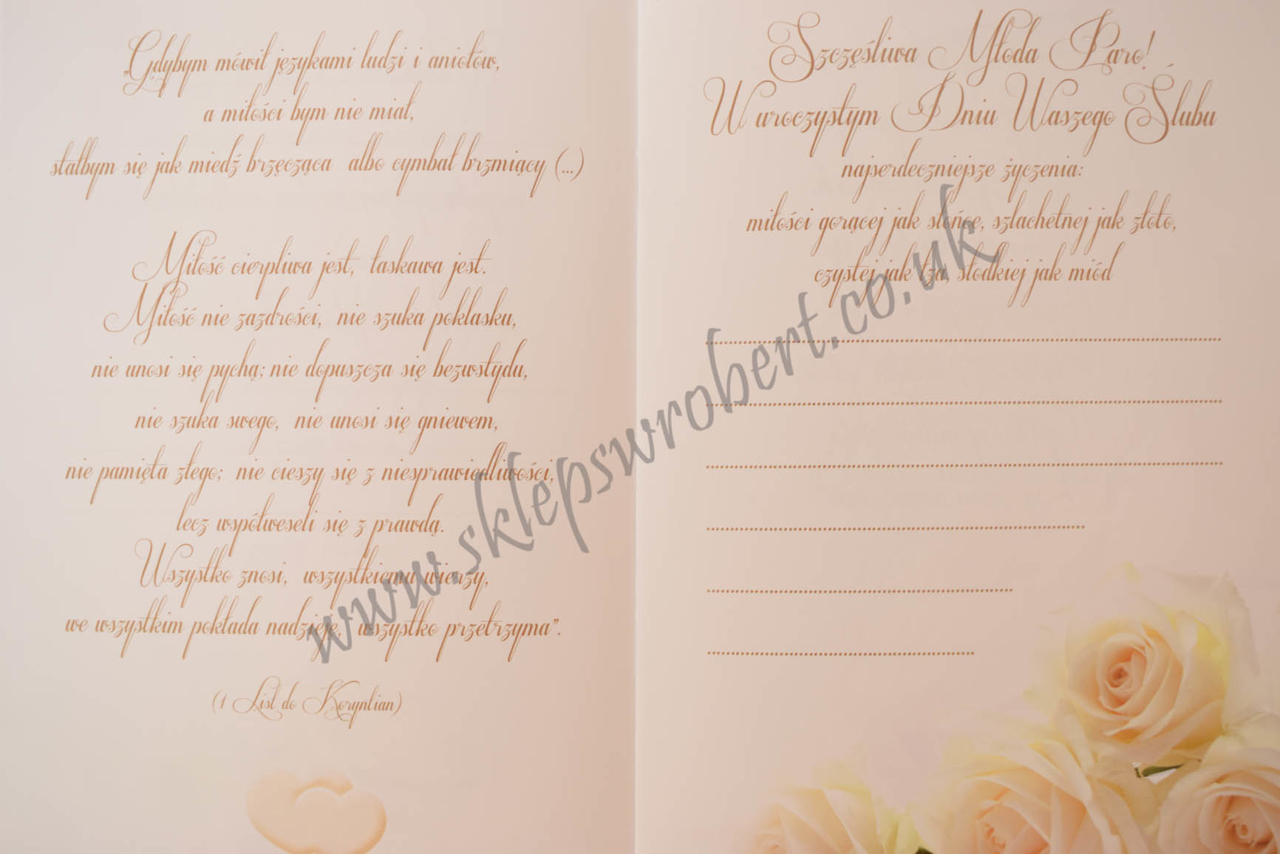 „Gdybym mówił językami ludzi i aniołów,
a miłości bym nie miał,
stałbym się jak miedź brzęcząca albo cymbał brzmiący (...)
Miłość cierpliwa jest, łaskawa jest.
Miłość nie zazdrości, nie szuka poklasku,
nie unosi się pychą; nie dopuszcza się bezwstydu,
nie szuka swego, nie unosi się gniewem,
nie pamięta złego; nie cieszy się z niesprawiedliwości,
lecz współweseli się z prawdą.
Wszystko znosi, wszystkiemu wierzy,
we wszystkim pokłada nadzieję, wszystko przetrzyma”.
(1 List do Koryntian)
Szczęśliwa Młoda Paro!
W uroczystym Dniu Waszego Ślubu
najserdeczniejsze życzenia:
miłości gorącej jak słońce, szlachetnej jak złoto,
czystej jak łza, słodkiej jak miód
www.sklepswrobert.co.uk